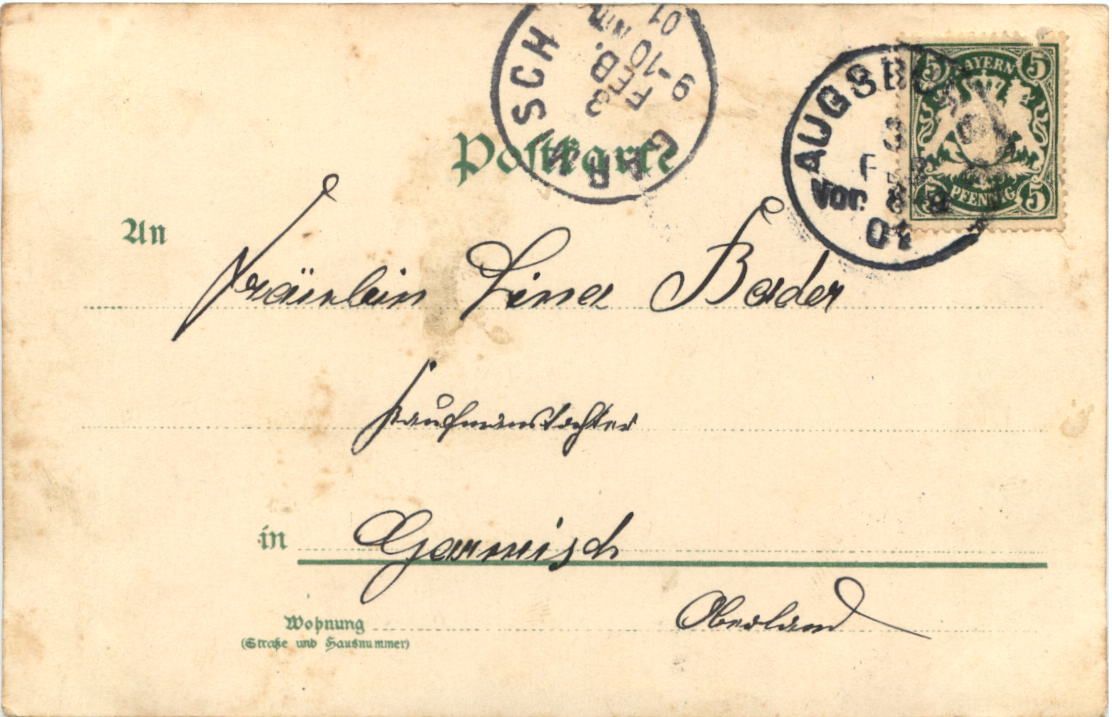 GARMISCH
3
FEB.
9-10
01
AUGSBU
3
FEB
Vor. 8-9
01
BAYERN
5 5
PFENNIG
5 5
Postkarte
An
Fräulein Lina Bader
Kaufmanstochter
in Garmisch
Oberland
Wohnung
(Straße und Hausnummer)